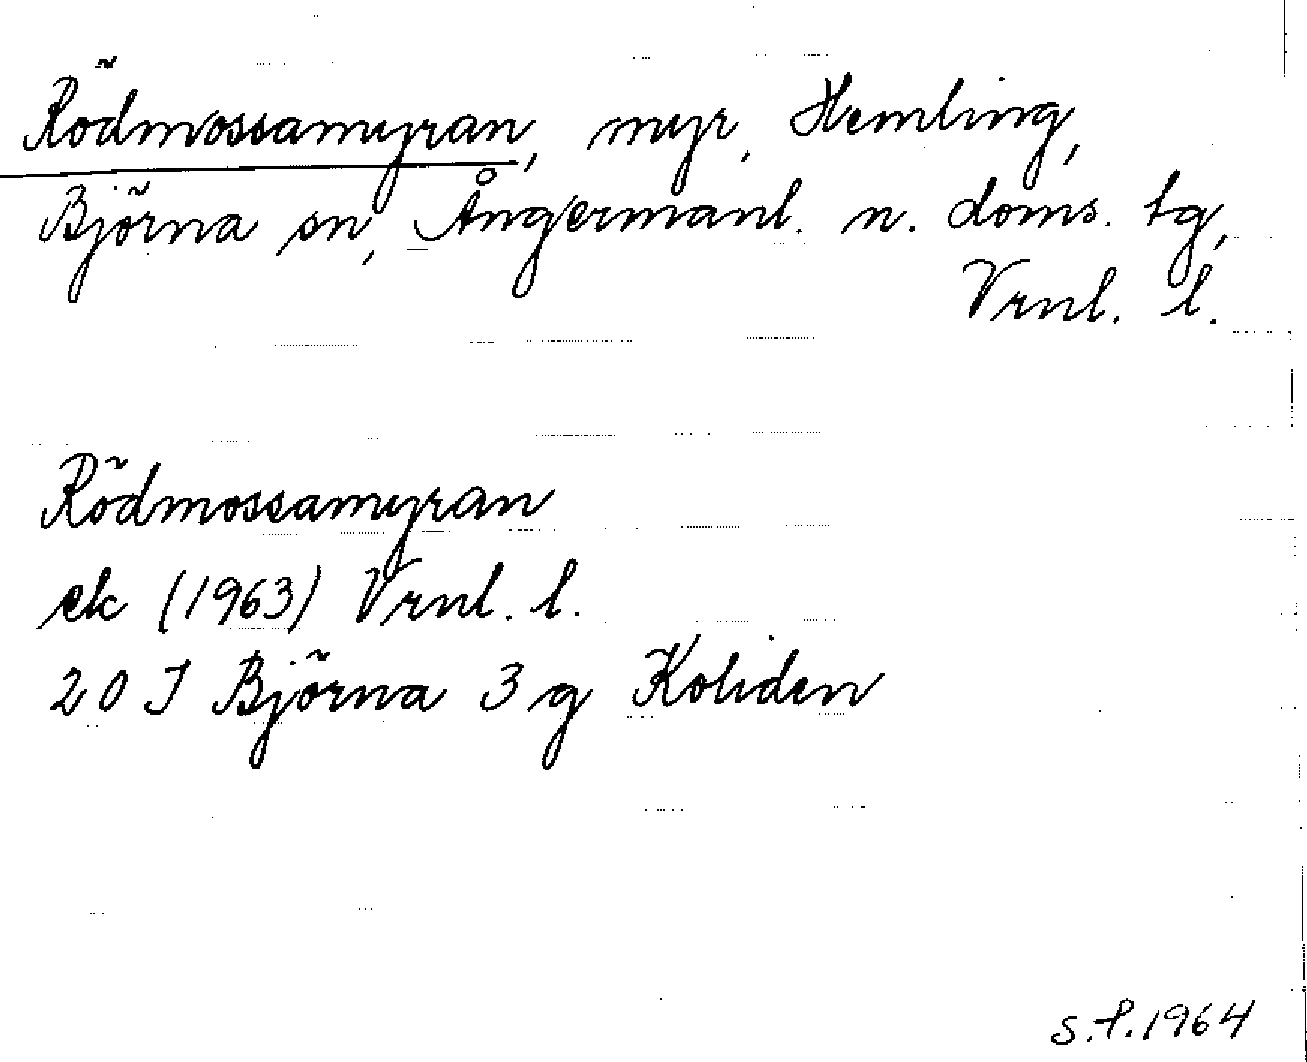 Rödmossamyran, myr, Hemling,
Björna sn, Ångermanl. n. doms. tg,
Vrnl. l.
Rödmossamyran
ek (1963) Vrnl. l.
20 I Björna 3 g Koliden
S.P. 1964